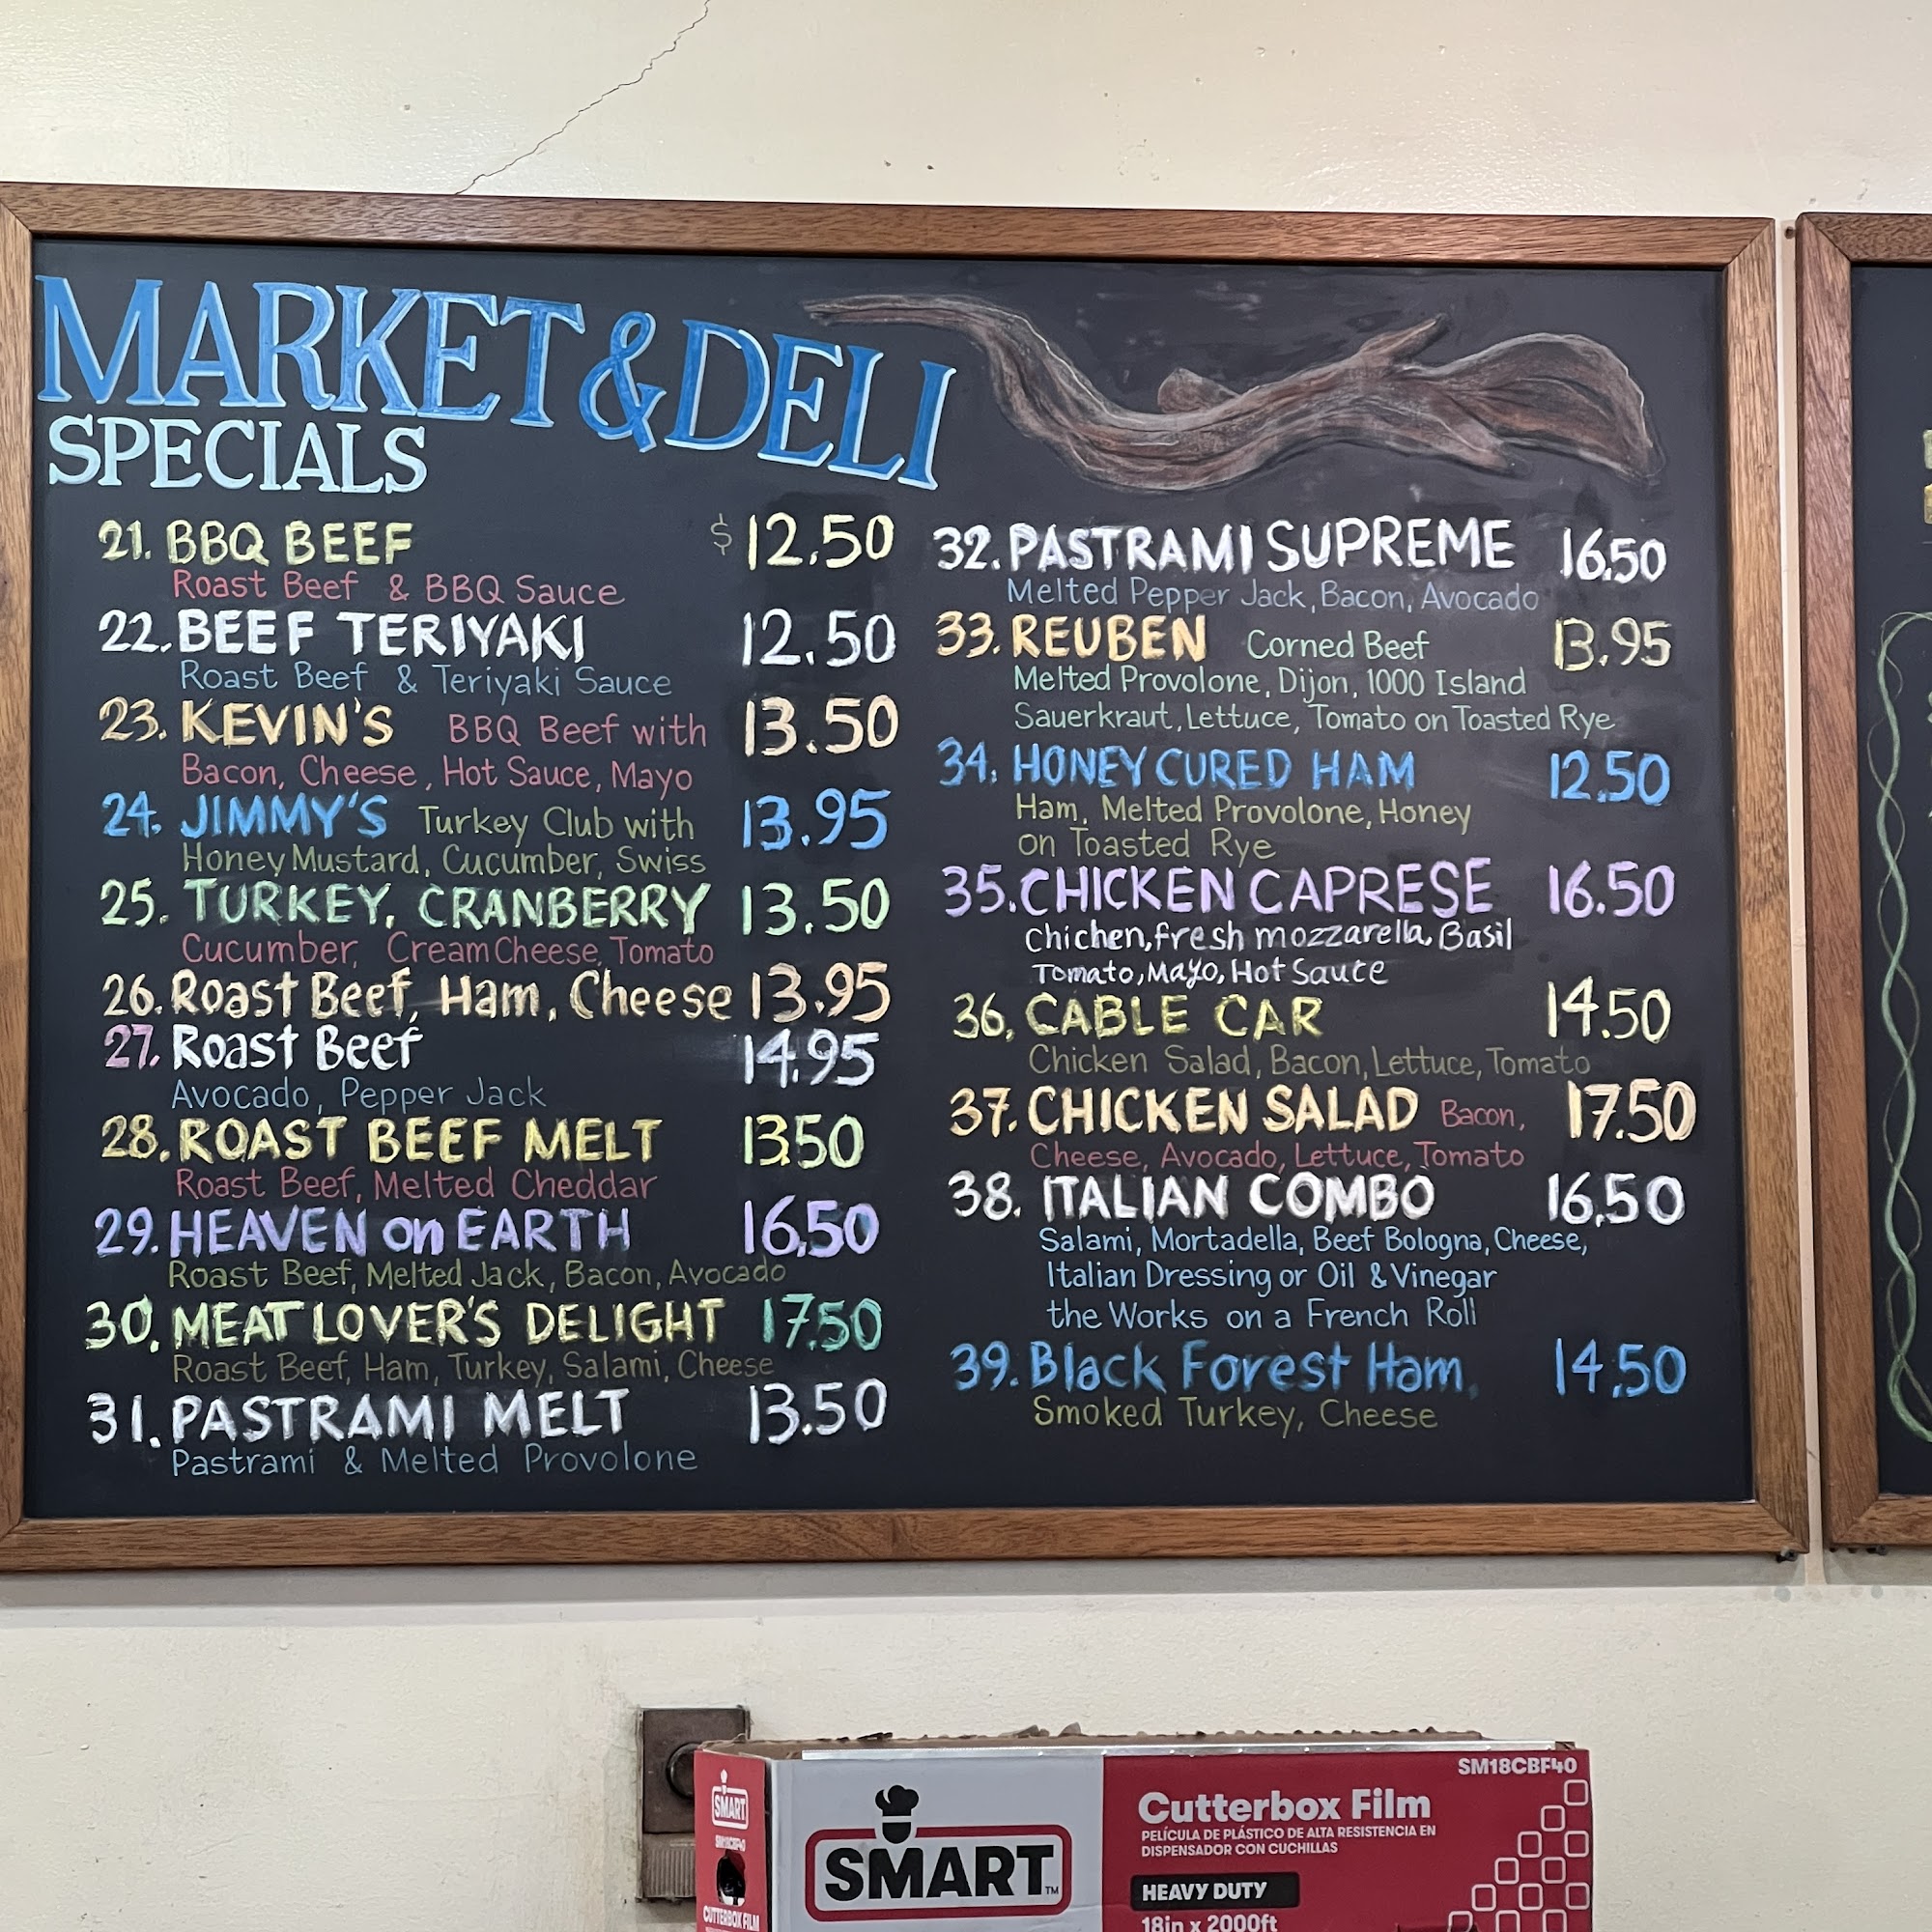 MARKET & DELI
SPECIALS
21. BBQ BEEF $12.50
Roast Beef & BBQ Sauce
22. BEEF TERIYAKI 12.50
Roast Beef & Teriyaki Sauce
23. KEVIN'S BBQ Beef with 13.50
Bacon, Cheese, Hot Sauce, Mayo
24. JIMMY'S Turkey Club with 13.95
Honey Mustard, Cucumber, Swiss
25. TURKEY, CRANBERRY 13.50
Cucumber, Cream Cheese, Tomato
26. Roast Beef, Ham, Cheese 13.95
27. Roast Beef 14.95
Avocado, Pepper Jack
28. ROAST BEEF MELT 13.50
Roast Beef, Melted Cheddar
29. HEAVEN on EARTH 16.50
Roast Beef, Melted Jack, Bacon, Avocado
30. MEAT LOVER'S DELIGHT 17.50
Roast Beef, Ham, Turkey, Salami, Cheese
31. PASTRAMI MELT 13.50
Pastrami & Melted Provolone
32. PASTRAMI SUPREME 16.50
Melted Pepper Jack, Bacon, Avocado
33. REUBEN Corned Beef 13.95
Melted Provolone, Dijon, 1000 Island
Sauerkraut, Lettuce, Tomato on Toasted Rye
34. HONEY CURED HAM 12.50
Ham, Melted Provolone, Honey
on Toasted Rye
35. CHICKEN CAPRESE 16.50
Chichen, fresh mozzarella, Basil
Tomato, Mayo, Hot Sauce
36. CABLE CAR 14.50
Chicken Salad, Bacon, Lettuce, Tomato
37. CHICKEN SALAD Bacon, 17.50
Cheese, Avocado, Lettuce, Tomato
38. ITALIAN COMBO 16.50
Salami, Mortadella, Beef Bologna, Cheese,
Italian Dressing or Oil & Vinegar
the Works on a French Roll
39. Black Forest Ham, 14.50
Smoked Turkey, Cheese
SM18CBF40
SMART
SM18CBF40
CUTTERBOX FILM
SMART™
Cutterbox Film
PELÍCULA DE PLÁSTICO DE ALTA RESISTENCIA EN
DISPENSADOR CON CUCHILLAS
HEAVY DUTY
18in x 2000ft